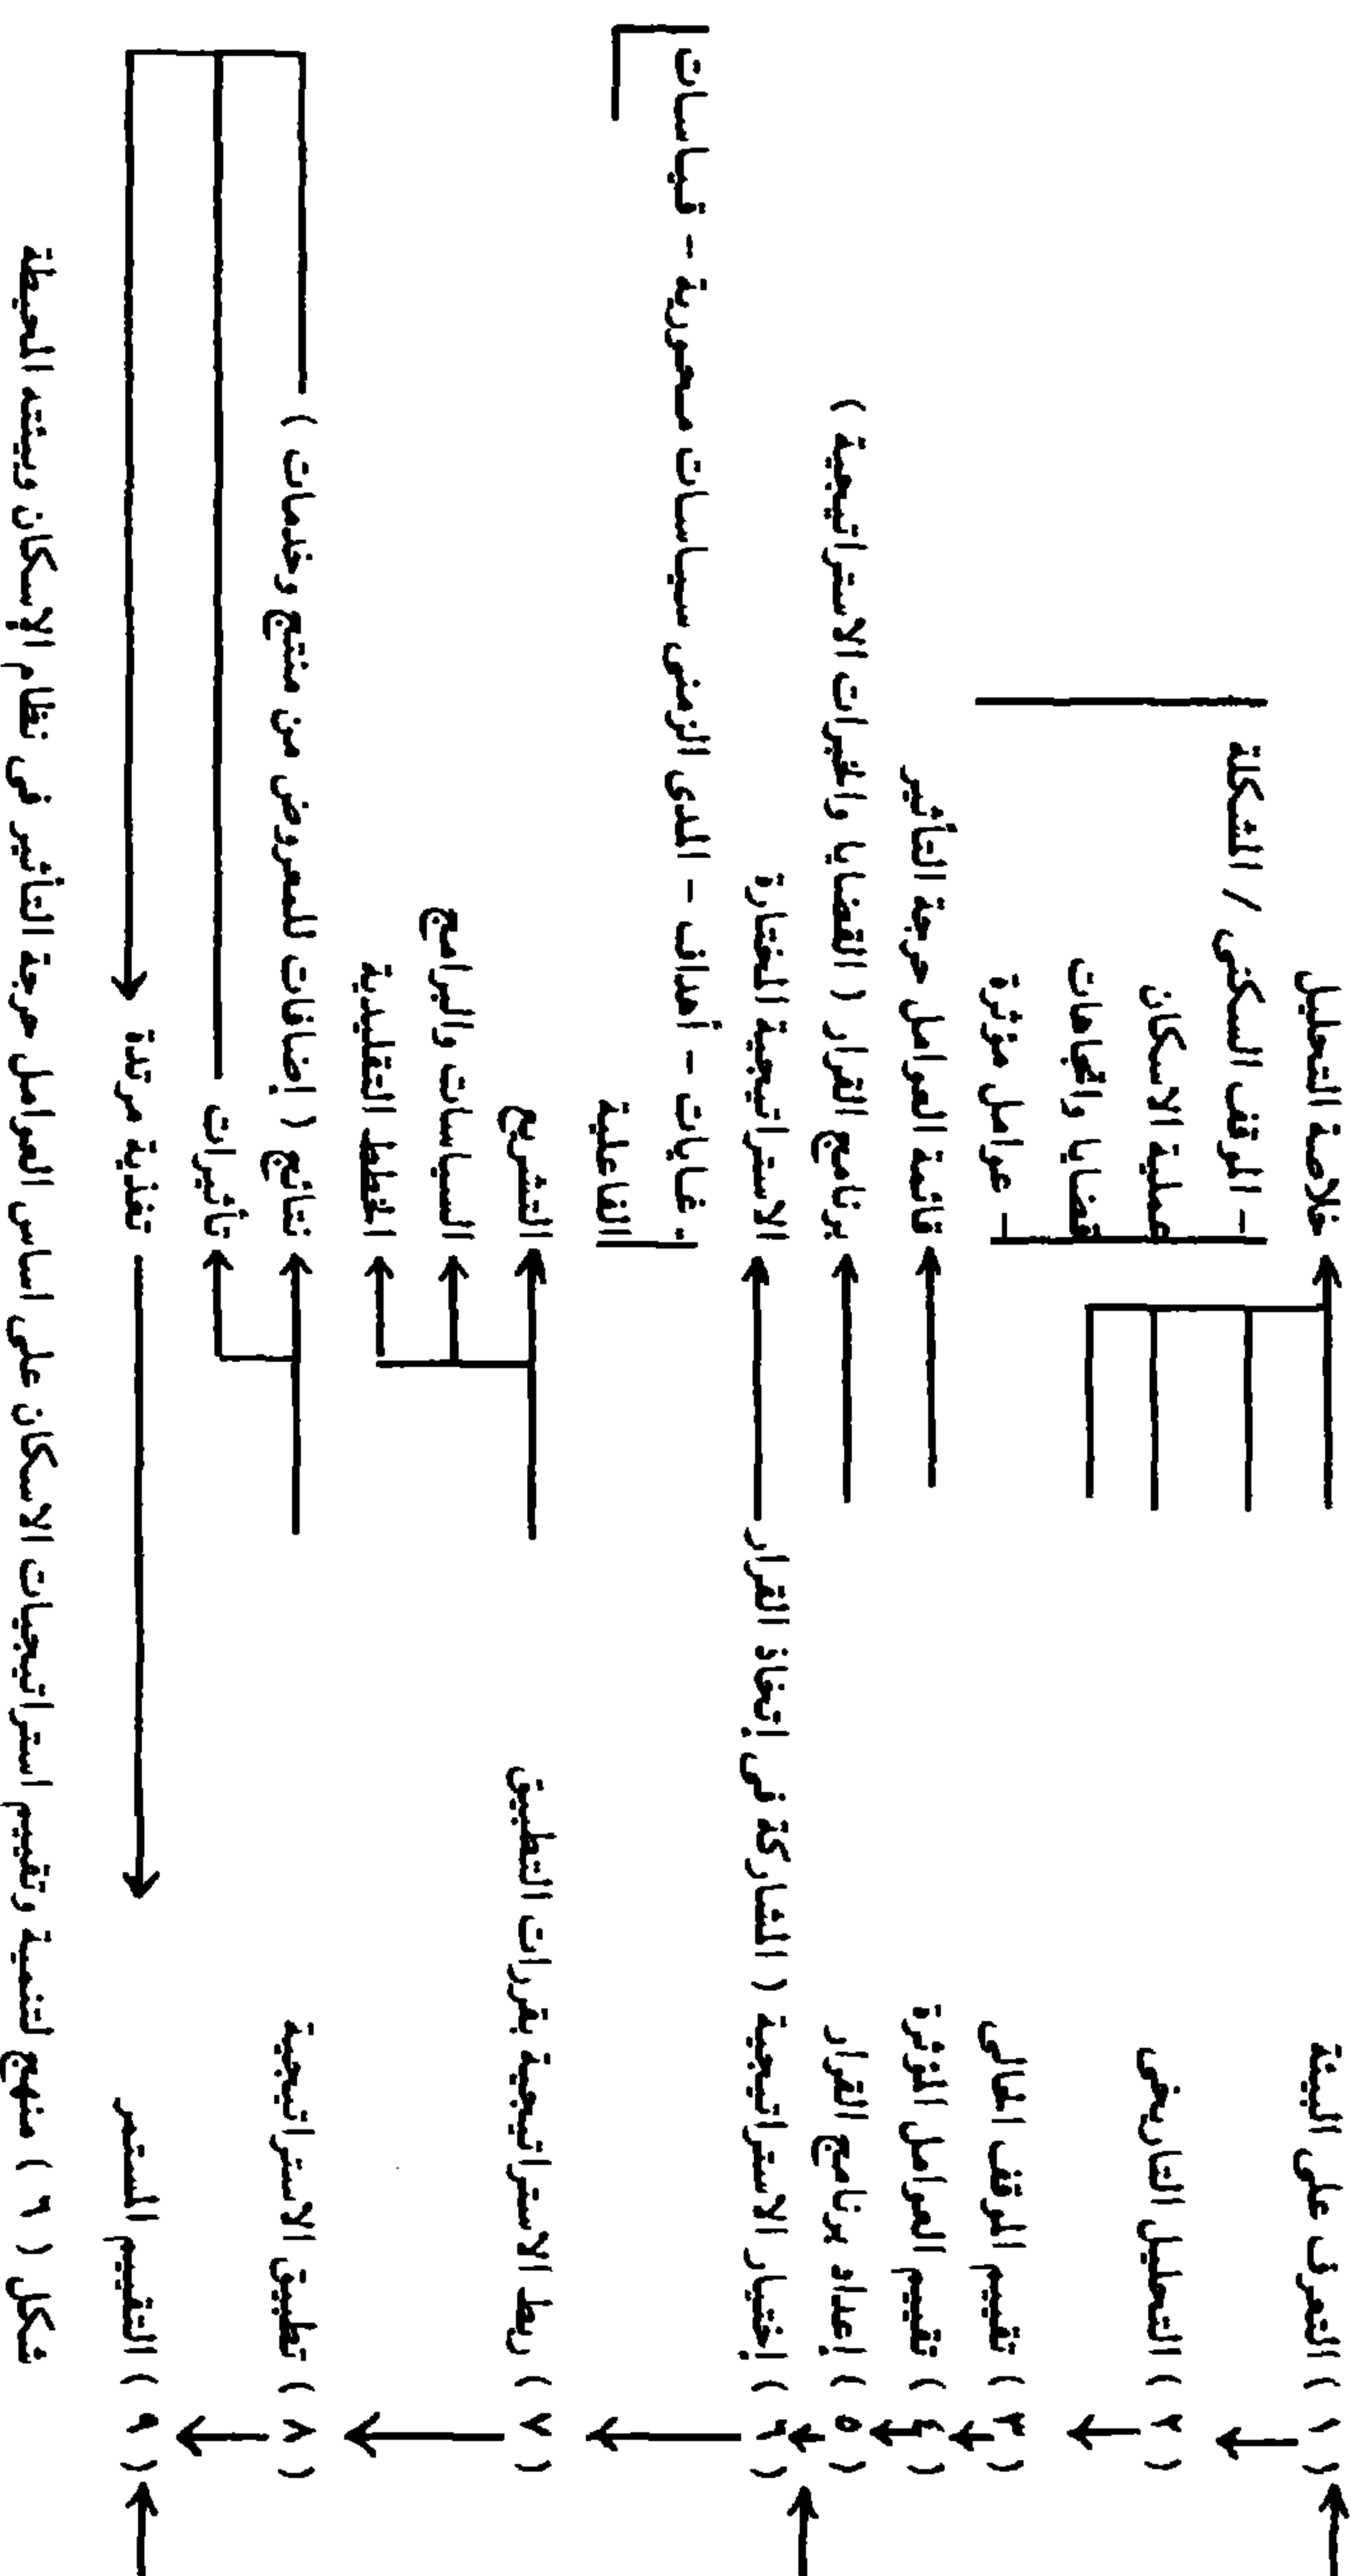 ( ١ ) التعرف على البيئة
خلاصة التحليل
( ٢ ) التحليل التاريخى
- الموقف السكنى / المشكلة
عملية الاسكان
قضايا واتجاهات
( ٣ ) تقييم الموقف الحالى
- عوامل مؤثرة
( ٤ ) تقييم العوامل المؤثرة
قائمة العوامل حرجة التأثير
( ٥ ) إعداد برنامج القرار
برنامج القرار ( القضايا والخبرات الاستراتيجية )
( ٦ ) إختيار الاستراتيجية ( المشاركة فى إتخاذ القرار
الاستراتيجية المختارة
. غايات - أهداف - المدى الزمنى سياسات محورية - قياسات
الفاعلية
( ٧ ) ربط الاستراتيجية بقررات التطبيق
التشريع
السياسات والبرامج
الخطط التقليدية
( ٨ ) تطبيق الاستراتيجية
نتائج ( إضافات للمعروض من منتج وخدمات )
تأثيرات
( ٩ ) التقييم المستمر
تغذية مرتدة
شكل ( ٦ ) منهج لتنمية وتقييم استراتيجيات الاسكان على اساس العوامل حرجة التأثير فى نظام الإسكان وبيئته المحيطة